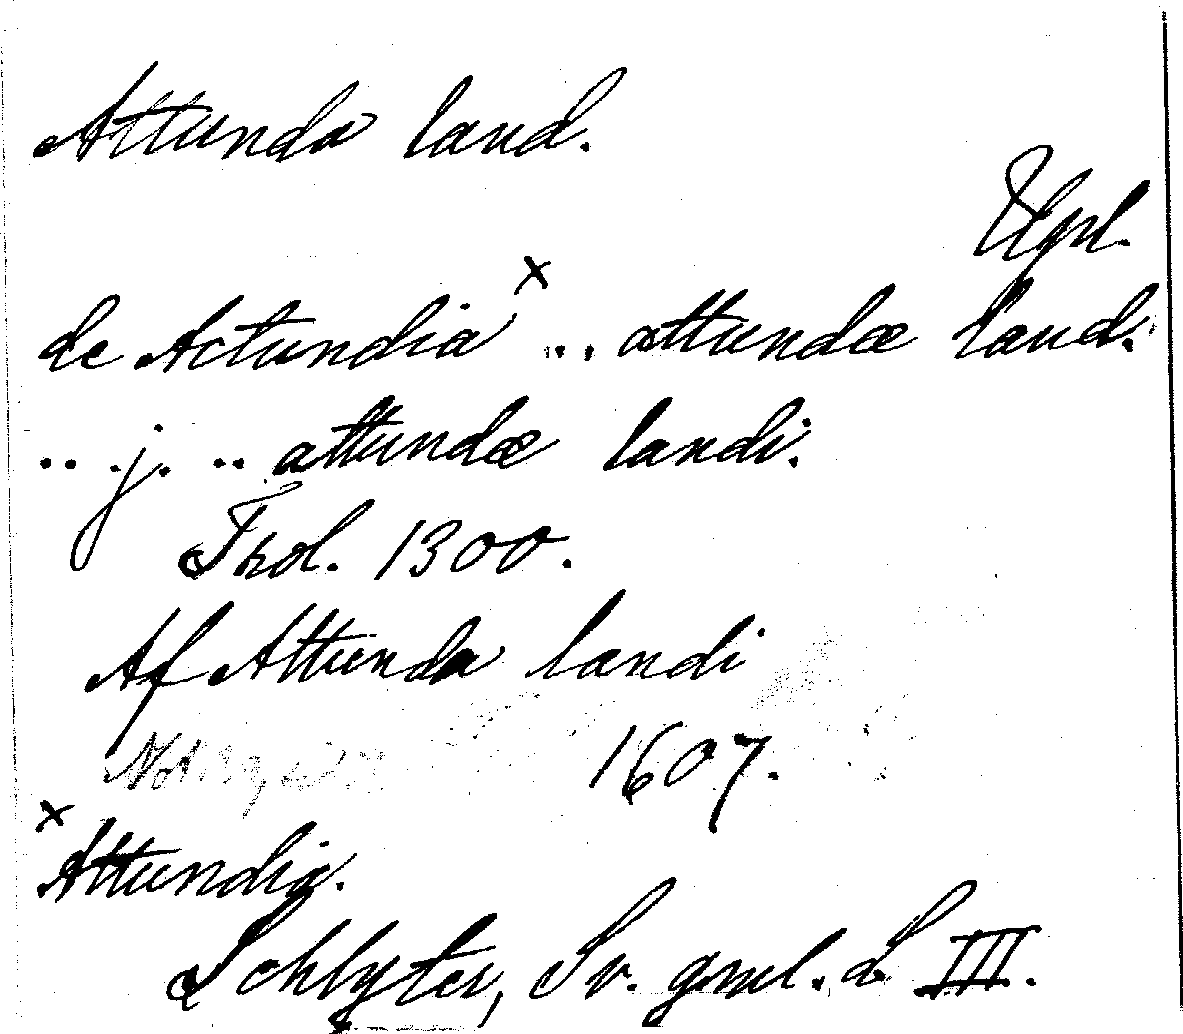 Attunda land.
Upl.
de Actundia x ... attundæ land.
.. j. .. attundæ landi.
Frol. 1300.
Af Attunda landi
1607.
x Attundia.
Schlyter, Sv. gml. L III.